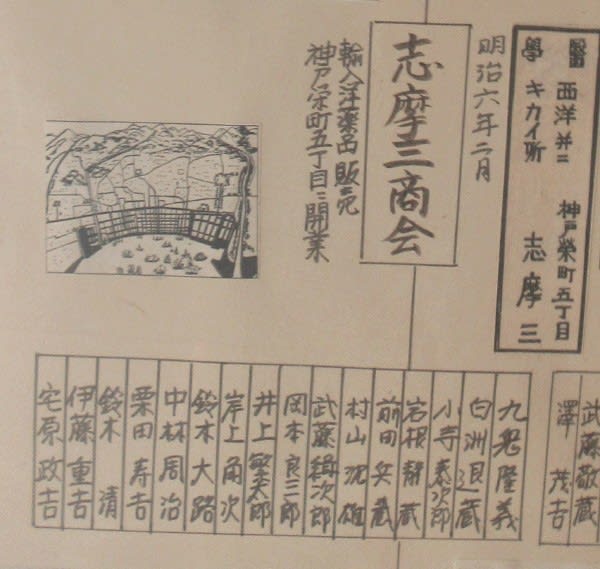 醫學
西洋并ニ
キカイ所
神戸榮町五丁目
志摩三
明治六年二月
志摩三商会
輸入洋薬品販売
神戸栄町五丁目ニ開業
武藤敬蔵
澤茂吉
九鬼隆義
白洲退蔵
小寺泰次郎
岩根静蔵
前田兵蔵
村山沈雄
武藤緝次郎
岡本良三郎
井上繁太郎
岸上角次
鈴木大路
中林周治
栗田寿吉
鈴木清
伊藤重吉
宅原政吉